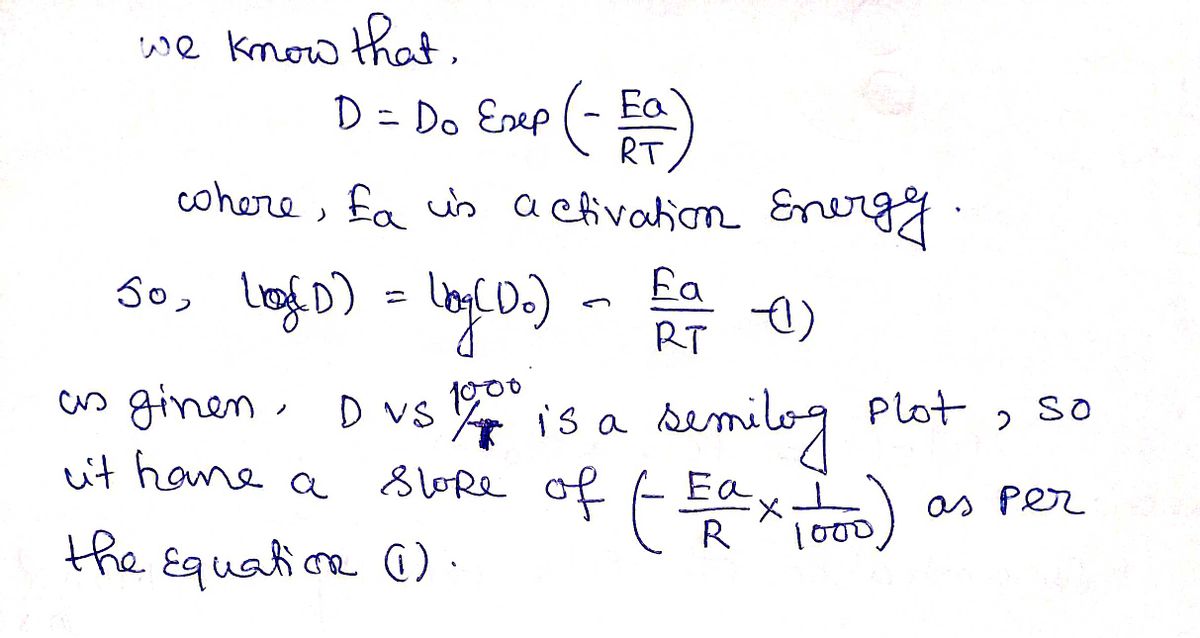 we know that,
D = Do Exp (- Ea/RT)
where, Ea is activation Energy.
so, log(D) = log(Do) - Ea/RT -(1)
as given, D vs 1000/T is a semilog plot, so
it have a slope of (- Ea/R × 1/1000) as per
the Equation (1).